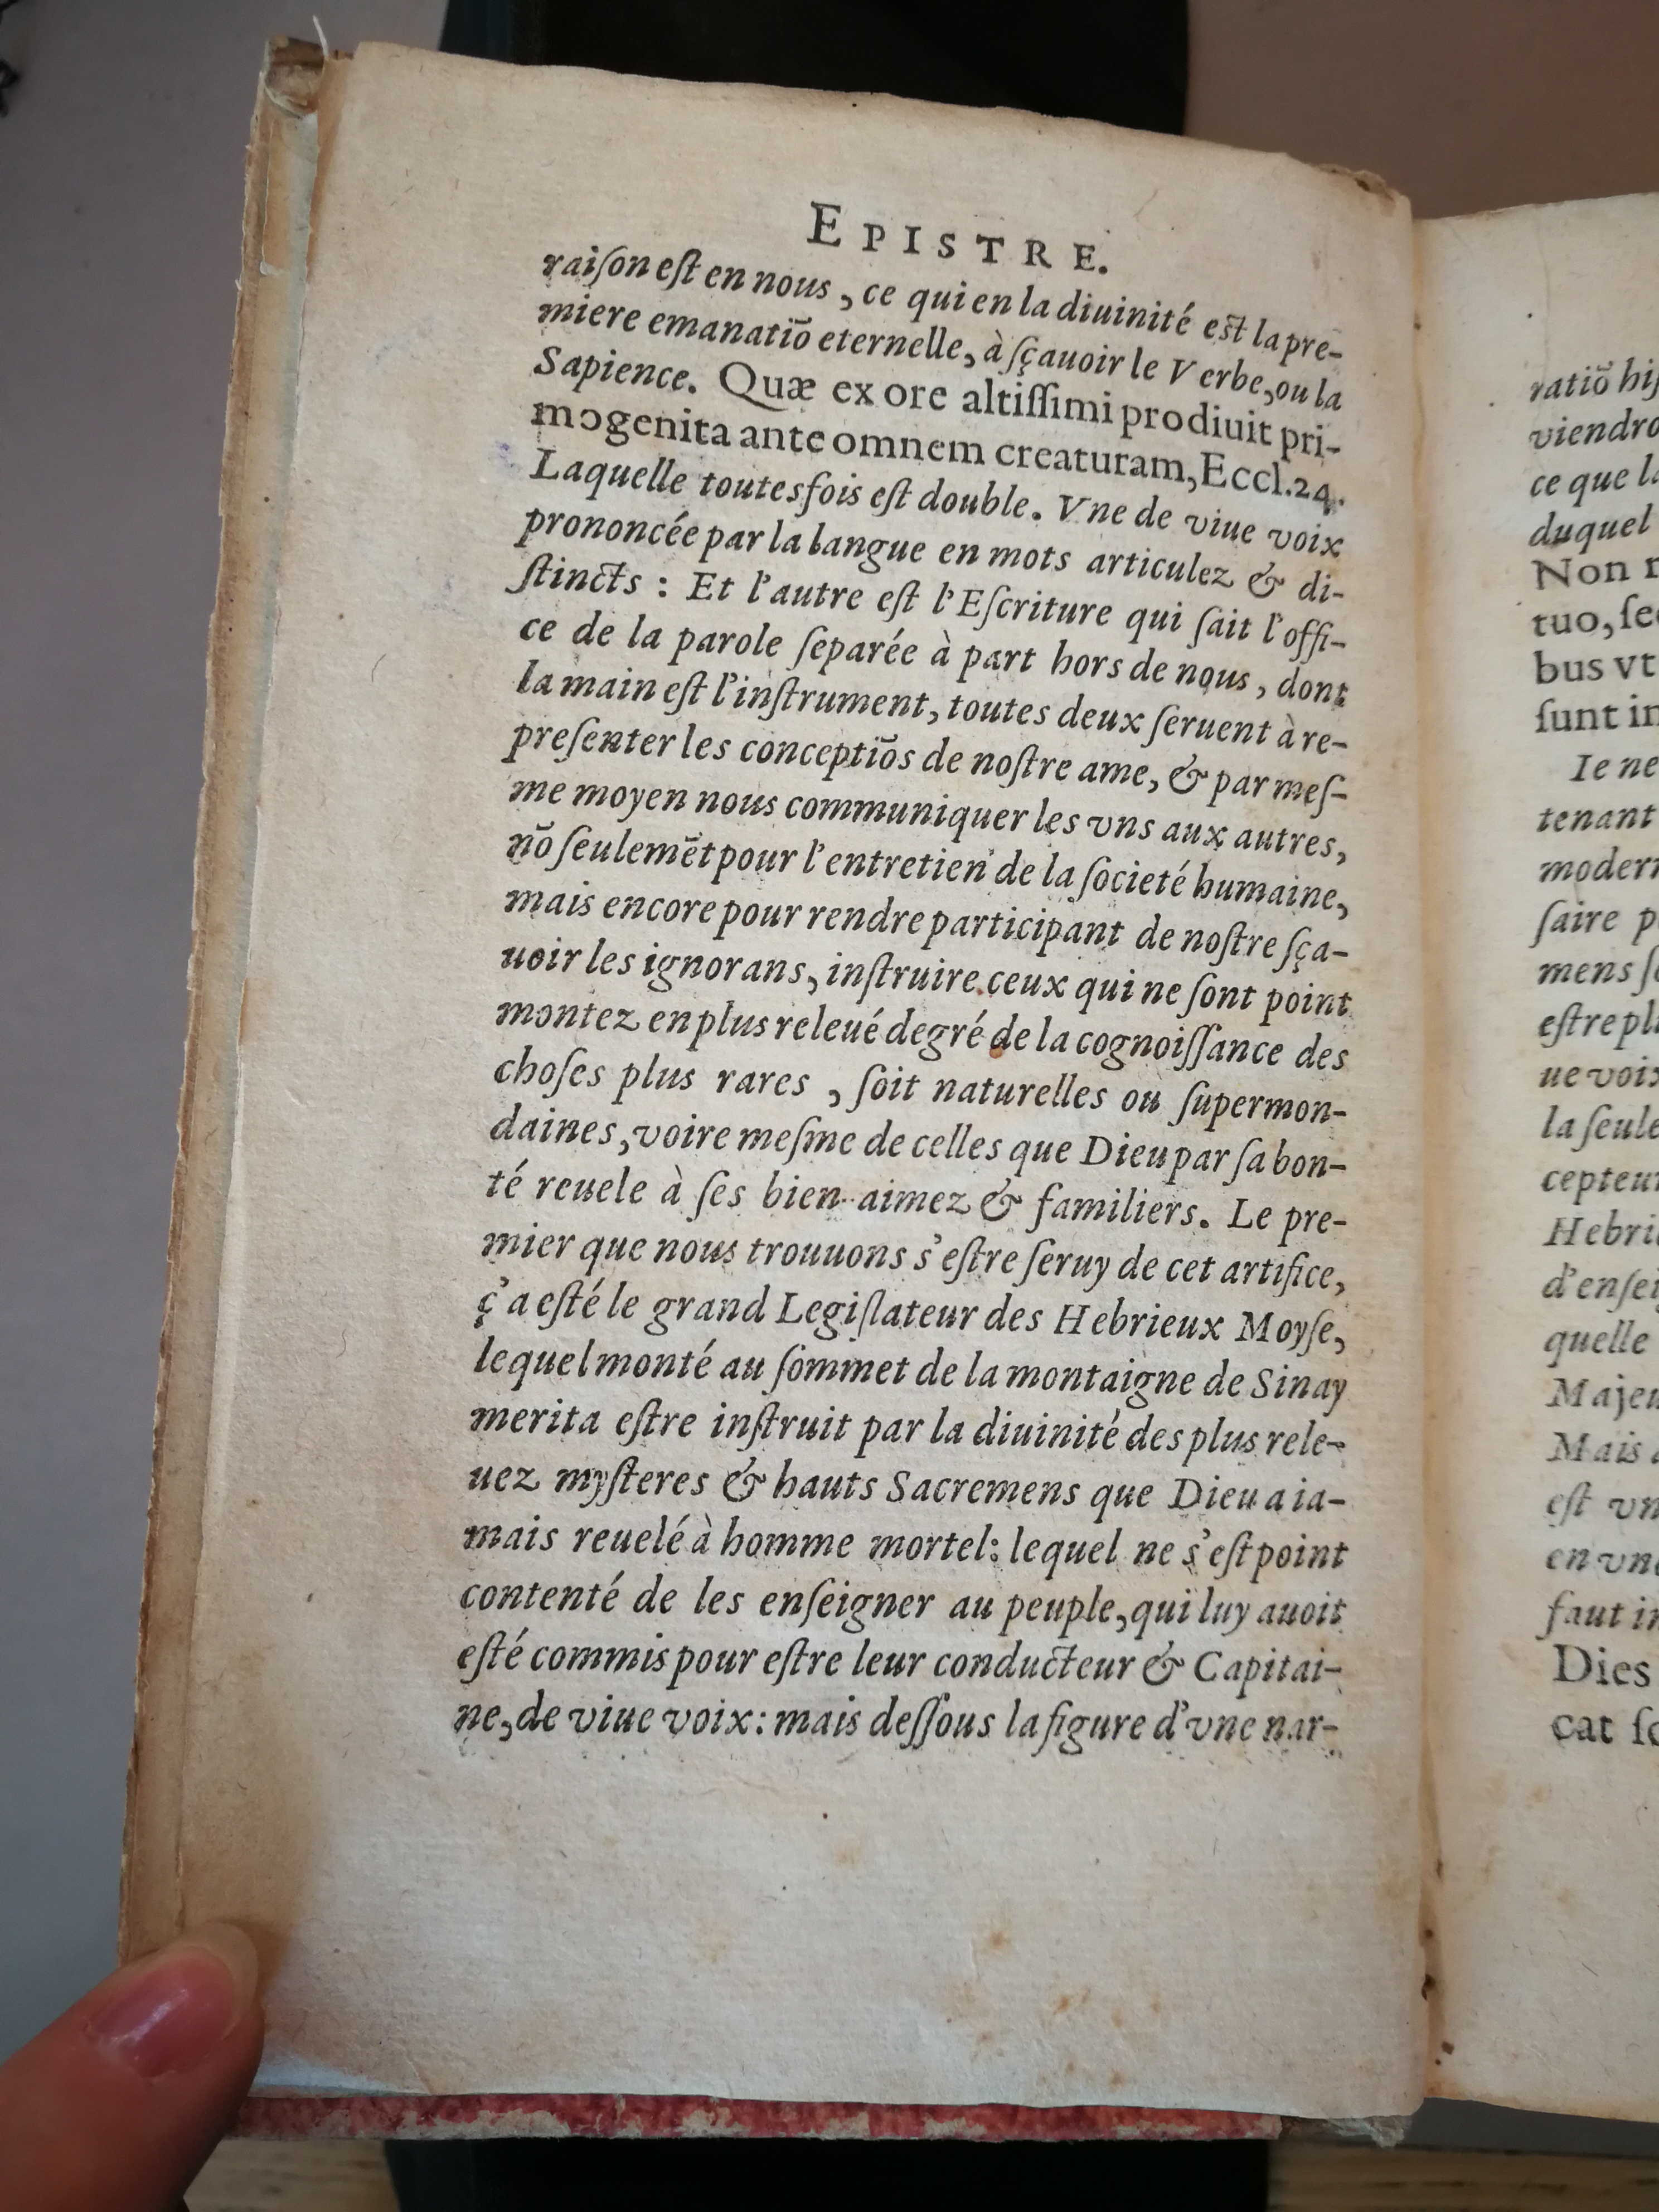 EPISTRE.
raiſon eſt en nous, ce qui en la diuinité eſt la pre-
miere emanatiō eternelle, à ſçauoir le Verbe, ou la
Sapience. Quæ ex ore altiſſimi prodiuit pri-
mogenita ante omnem creaturam, Eccl. 24.
Laquelle toutesfois eſt double. Vne de viue voix
prononcée par la langue en mots articulez & di-
ſtincts : Et l'autre eſt l'Eſcriture qui fait l'offi-
ce de la parole ſeparée à part hors de nous, dont
la main eſt l'inſtrument, toutes deux ſeruent à re-
preſenter les conceptiōs de noſtre ame, & par meſ-
me moyen nous communiquer les vns aux autres,
nō ſeulemēt pour l'entretien de la ſocieté humaine,
mais encore pour rendre participant de noſtre ſça-
uoir les ignorans, inſtruire ceux qui ne ſont point
montez en plus releué degré de la cognoiſſance des
choſes plus rares, ſoit naturelles ou ſupermon-
daines, voire meſme de celles que Dieu par ſa bon-
té reuele à ſes bien-aimez & familiers. Le pre-
mier que nous trouuons s'eſtre ſeruy de cet artifice,
ç'a eſté le grand Legiſlateur des Hebrieux Moyſe,
lequel monté au ſommet de la montaigne de Sinay
merita eſtre inſtruit par la diuinité des plus rele-
uez myſteres & hauts Sacremens que Dieu a ia-
mais reuelé à homme mortel : lequel ne s'eſt point
contenté de les enſeigner au peuple, qui luy auoit
eſté commis pour eſtre leur conducteur & Capitai-
ne, de viue voix : mais deſſous la figure d'vne nar-
ratiō hiſ
viendro
ce que la
duquel
Non
tuo, ſe
bus vt
ſunt in
Ie ne
tenant
modern
faire p
mens ſ
eſtre pl
ue voix
la ſeule
cepteur
Hebri
d'enſei
quelle
Majeu
Mais
eſt vn
en vn
faut in
Dies
cat ſ